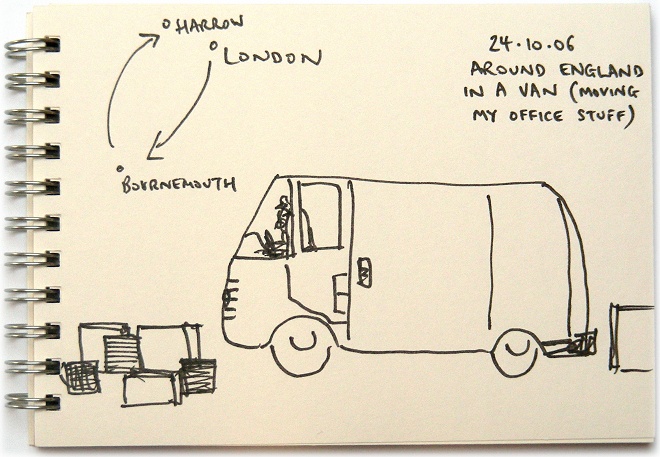 HARROW
LONDON
BOURNEMOUTH
24.10.06
AROUND ENGLAND
IN A VAN (MOVING
MY OFFICE STUFF)